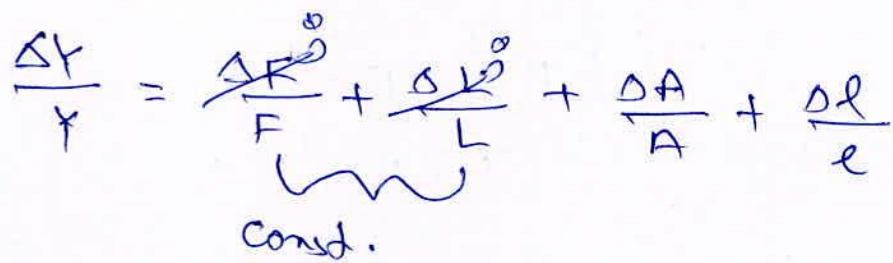 ΔY/Y = ΔF⁰/F + ΔL⁰/L + ΔA/A + Δl/l
Const.